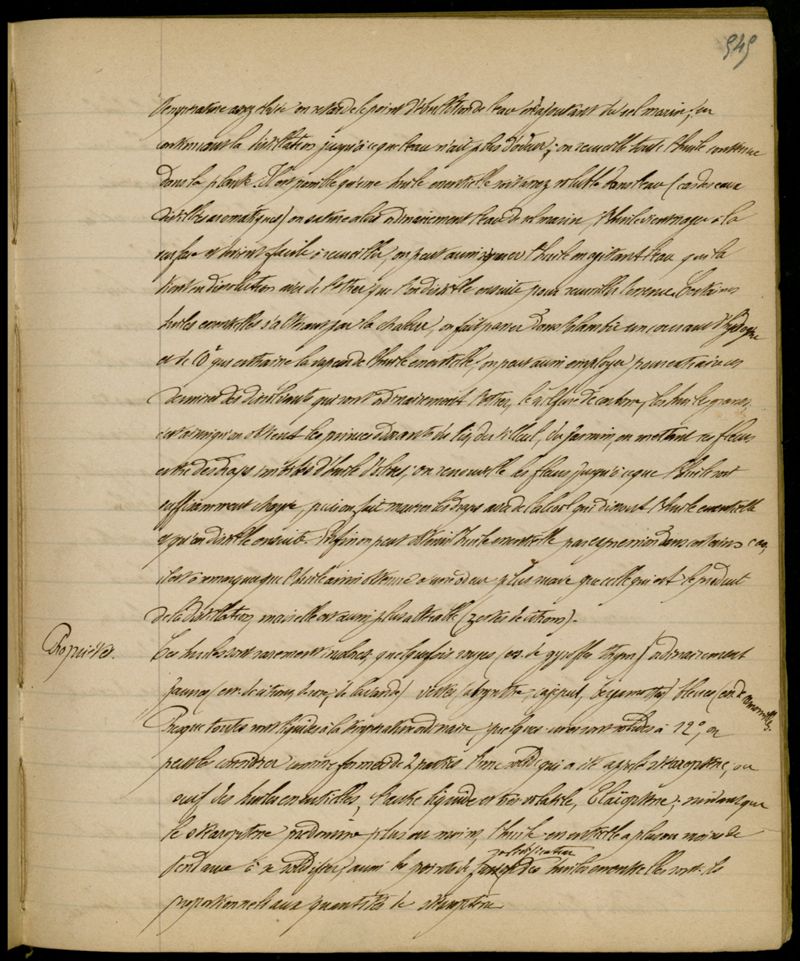 949
température assez élevée on retarde le point d'ébullition de l'eau en ajoutant du sel marin, en
continuant la distillation jusqu'à ce que l'eau n'ait plus d'odeur, on recueille toute l'huile contenue
dans la plante. Il est possible qu'une huile essentielle soit assez soluble dans l'eau (cas des eaux
distillées aromatiques) on sature alors ordinairement l'eau de sel marin, l'huile vient nager à la
surface et devient facile à recueillir, on peut aussi séparer l'huile en agitant l'eau qui la
tient en dissolution avec de l'éther que l'on distille ensuite pour recueillir l'essence. Certaines
huiles essentielles s'altérant par la chaleur, on fait passer dans l'alambic un courant d'hydrogène
et de CO² qui entraîne la vapeur de l'huile essentielle, on peut aussi employer pour extraire ces
dernières des dissolvants qui sont ordinairement l'éther, le sulfure de carbone, les huiles grasses
c'est ainsi qu'on obtient les principes odorants du lis, du tilleul, du jasmin, en mettant ces fleurs
entre des draps imbibés d'huile d'olives; on renouvelle les fleurs jusqu'à ce que l'huile soit
suffisamment chargée, puis on fait macérer les draps avec de l'alcool qui dissout l'huile essentielle
et qu'on distille ensuite. Enfin on peut obtenir l'huile essentielle par expression dans certains cas,
il est à remarquer que l'huile ainsi obtenue a une odeur plus suave que celle qui est le produit
de la distillation, mais elle est aussi plus altérable (zestes de citrons).
Propriétés.
Ces huiles sont rarement incolores, quelquefois rouges (ess. de gyrofle, thym) ordinairement
jaunes (ess. de citron, de rue, de lavande) vertes (absynthe, cajeput, bergamotte) bleues (ess. de camomille).
Presque toutes sont liquides à la température ordinaire, quelques unes sont solides à 12°, on
peut les considérer comme formées de 2 parties l'une solide qui a été appelée stéaroptène, ou
suif des huiles essentielles, l'autre liquide et très volatile, l'élaïoptène; suivant que
le stéaroptène prédomine plus ou moins, l'huile essentielle a plus ou moins de
tendance à se solidifier, aussi les points de solidification des huiles essentielles sont ils
proportionnels aux quantités de stéaroptène